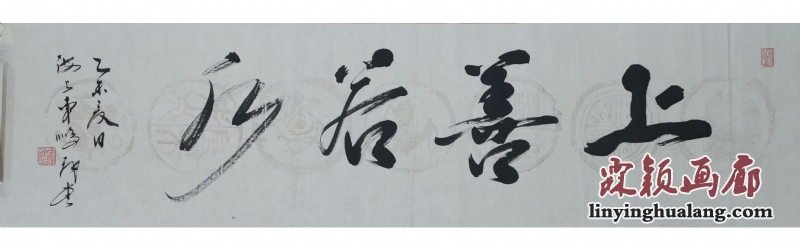 上善若水
乙未夏日
霖颖画廊
linyinghualang.com